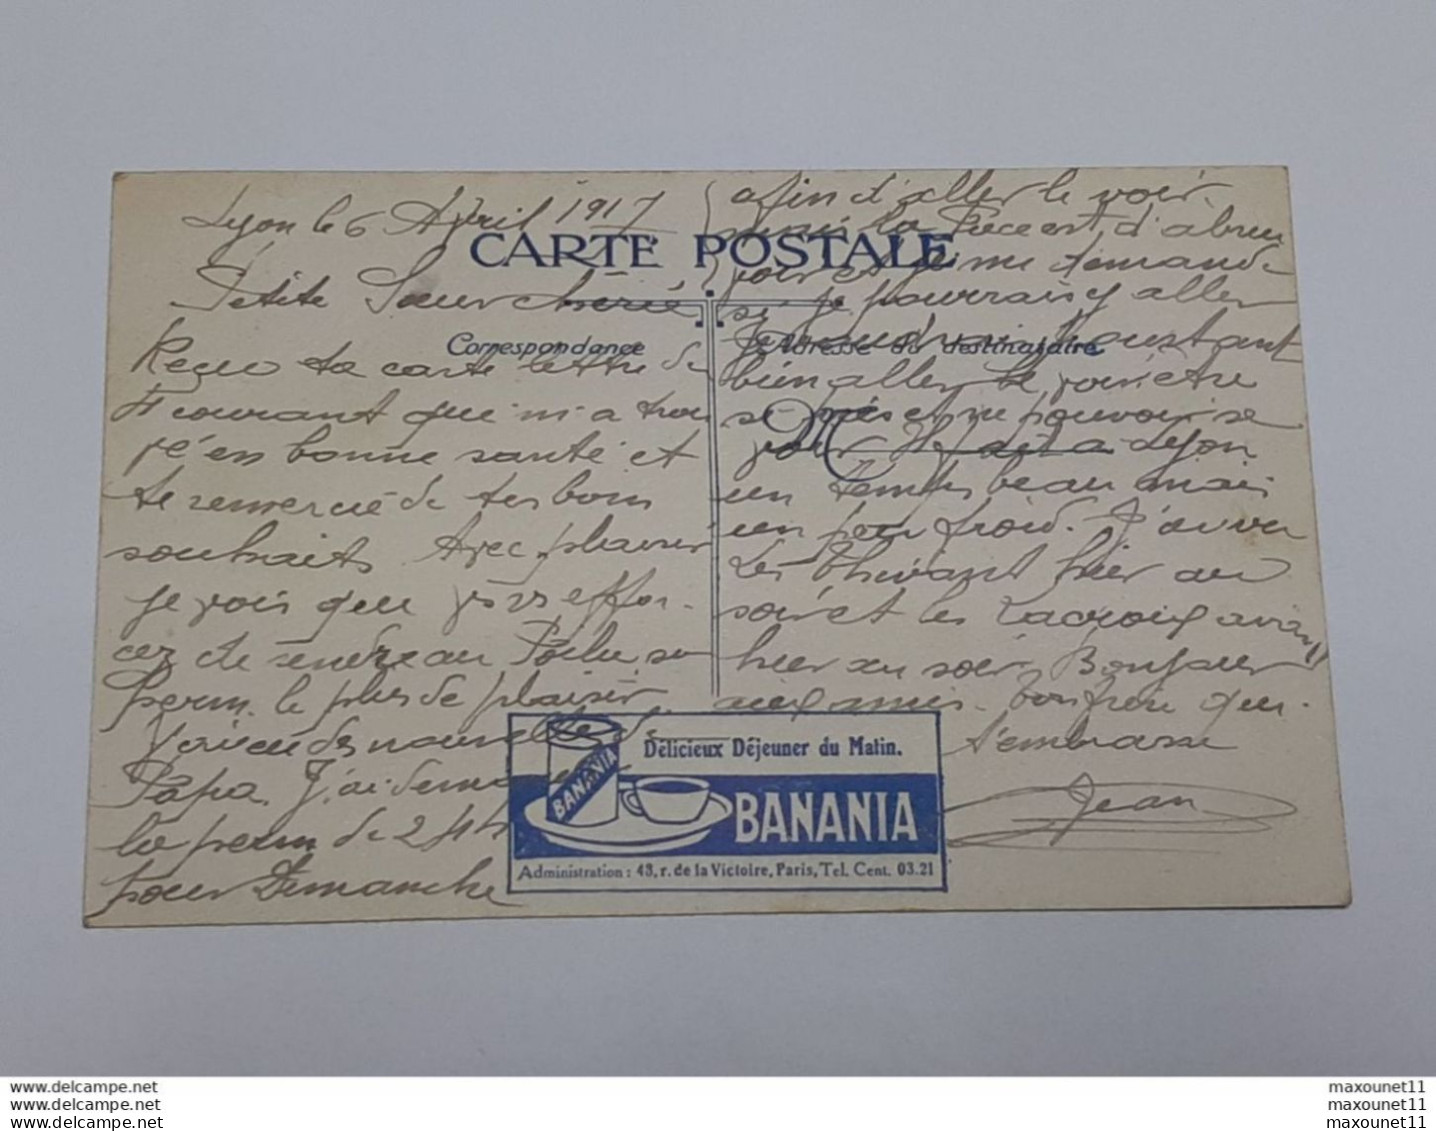 Lyon le 6 Avril 1917
CARTE POSTALE
Petite Soeur cherie
Correspondance
Reçu ta carte lettre du
courant qui m'a trou
vé en bonne santé et
te remercie de tes bons
souhaits. Avec plaisir
je vois que effor-
cez de rendre au Poilu en
perm. le plus de plaisir
des nouvelles de
Papa. J'ai demandé
la perm de 24 H
pour Dimanche
afin d'aller le voir.
mais la d'abru
voir et je me demande
si je pourrai y aller
Adresse du destinataire
pourtant
bien aller le voir etre
si près et ne pouvoir se
voir. Il fait a Lyon
un temps beau mais
un peu froid. J'ai vu
Les hier au
soir et les Lacroix avant
hier au soir. Bonjour
aux amis. Ton frere qui
t'embrasse
Jean
Délicieux Déjeuner du Matin.
BANANIA
BANANIA
Administration : 43, r. de la Victoire, Paris, Tel. Cent. 03.21
www.delcampe.net
www.delcampe.net
www.delcampe.net
maxounet11
maxounet11
maxounet11